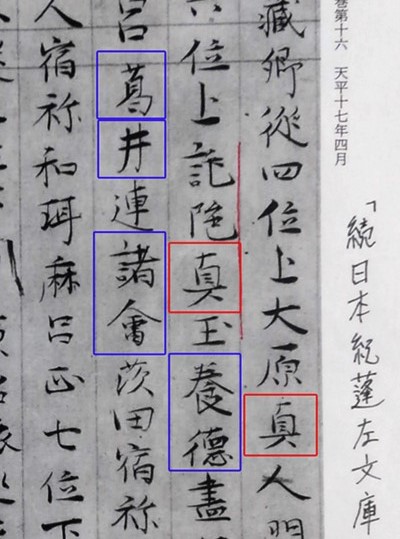 「続日本紀蓬左文庫
巻第十六 天平十七年四月
藏卿從四位上大原真人
六位上託陁真玉養德畫
呂葛井連諸會茨田宿祢
人宿祢和珥麻呂正七位下